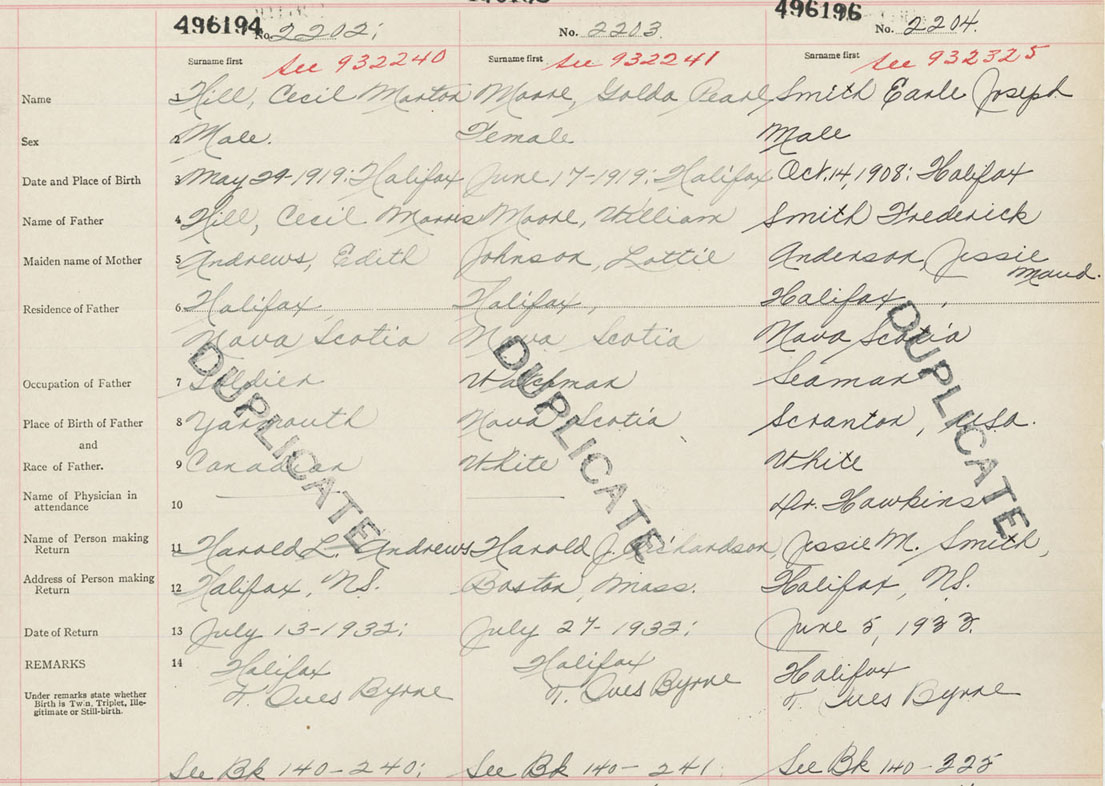 496194 No. 2202; No. 2203. 496196 No. 2204.
Surname first See 932240 Surname first See 932241 Surname first See 932325
Name 1 Hill, Cecil Morton Moore, Golda Pearl Smith Earle Joseph
Sex 2 Male. Female. Male
Date and Place of Birth 3 May 29-1919: Halifax June 17-1919: Halifax Oct. 14, 1908: Halifax
Name of Father 4 Hill, Cecil Morris Moore, William Smith Frederick
Maiden name of Mother 5 Andrews, Edith Johnson, Lottie Anderson, Jessie
Maud.
Residence of Father 6 Halifax, Halifax, Halifax,
Nova Scotia Nova Scotia Nova Scotia
Occupation of Father 7 Soldier Watchman Seaman
Place of Birth of Father 8 Yarmouth Nova Scotia Scranton, U.S.a.
and
Race of Father. 9 Canadian White White
DUPLICATE DUPLICATE DUPLICATE
Name of Physician in
attendance 10 Dr. Hawkins
Name of Person making
Return 11 Harold L. Andrews Harold J. Richardson Jessie M. Smith,
Address of Person making
Return 12 Halifax, N.S. Boston, Mass. Halifax, N.S.
Date of Return 13 July 13-1932; July 27-1932; June 5, 1933.
REMARKS 14 Halifax Halifax Halifax
Under remarks state whether
Birth is Twin, Triplet, Ille-
gitimate or Still-birth.
T. Ives Byrne T. Ives Byrne T. Ives Byrne
See Bk 140-240; See Bk 140-241 See Bk 140-325